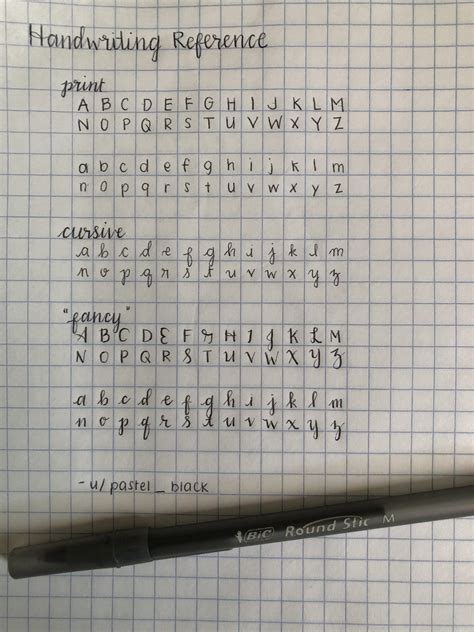 Handwriting Reference
print
A B C D E F G H I J K L M
N O P Q R S T U V W X Y Z
a b c d e f g h i j k l m
n o p q r s t u v w x y z
cursive
a b c d e f g h i j k l m
n o p q r s t u v w x y z
"fancy"
A B C D E F G H I J K L M
N O P Q R S T U V W X Y Z
a b c d e f g h i j k l m
n o p q r s t u v w x y z
- u/pastel_black
BIC Round Stic M